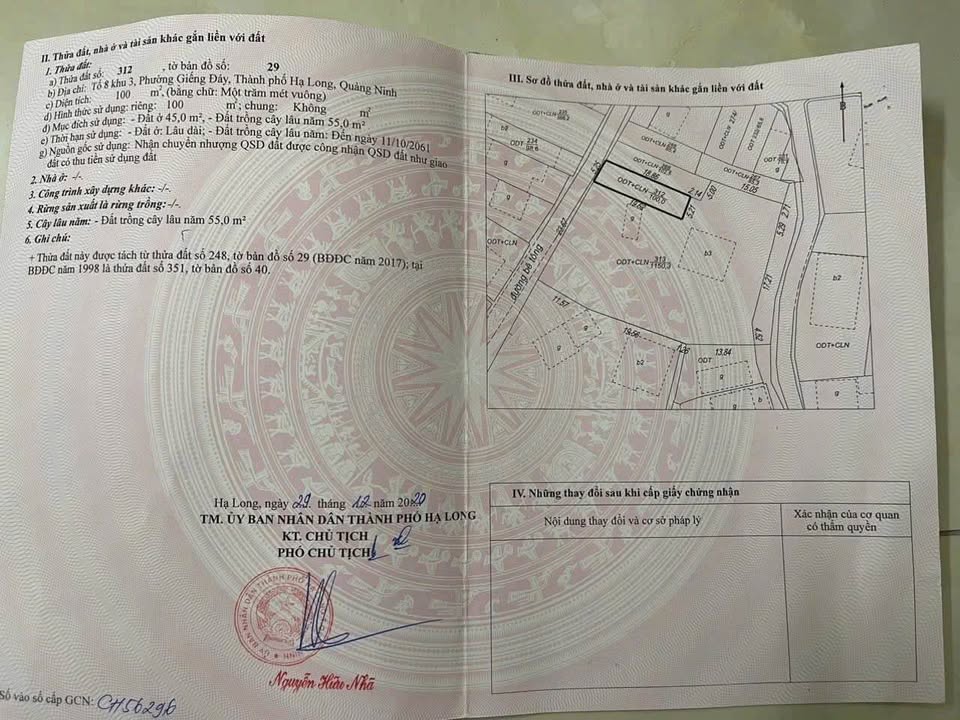 II. Thửa đất, nhà ở và tài sản khác gắn liền với đất
1. Thửa đất:
a) Thửa đất số: 312 , tờ bản đồ số: 29
b) Địa chỉ: Tổ 8 khu 3, Phường Giếng Đáy, Thành phố Hạ Long, Quảng Ninh
c) Diện tích: 100 m², (bằng chữ: Một trăm mét vuông)
d) Hình thức sử dụng: riêng: 100 m²; chung: Không m²
đ) Mục đích sử dụng: - Đất ở 45,0 m², - Đất trồng cây lâu năm 55,0 m²
e) Thời hạn sử dụng: - Đất ở: Lâu dài; - Đất trồng cây lâu năm: Đến ngày 11/10/2061
g) Nguồn gốc sử dụng: Nhận chuyển nhượng QSD đất được công nhận QSD đất như giao
đất có thu tiền sử dụng đất
2. Nhà ở: -/-.
3. Công trình xây dựng khác: -/-.
4. Rừng sản xuất là rừng trồng:-/-.
5. Cây lâu năm: - Đất trồng cây lâu năm 55,0 m²
6. Ghi chú:
+ Thửa đất này được tách từ thửa đất số 248, tờ bản đồ số 29 (BĐĐC năm 2017); tại
BĐĐC năm 1998 là thửa đất số 351, tờ bản đồ số 40.
Hạ Long, ngày 29 tháng 12 năm 2020
TM. ỦY BAN NHÂN DÂN THÀNH PHỐ HẠ LONG
KT. CHỦ TỊCH
PHÓ CHỦ TỊCH
Nguyễn Hữu Nhã
Số vào sổ cấp GCN: CH56296
III. Sơ đồ thửa đất, nhà ở và tài sản khác gắn liền với đất
B
ODT+CLN
b2
ODT
g
5.25
18.86
ODT+CLN 312 100,0
2.14
5.00
15.05
19.62
5.21
g
ODT+CLN 313 1150,3
b3
5.29
2.71
17.21
ODT+CLN
đường bê tông
11.57
19.66
1.26
13.84
4.52
g
b2
ODT
g
b
g
b2
ODT+CLN
g
IV. Những thay đổi sau khi cấp giấy chứng nhận
Nội dung thay đổi và cơ sở pháp lý
Xác nhận của cơ quan
có thẩm quyền